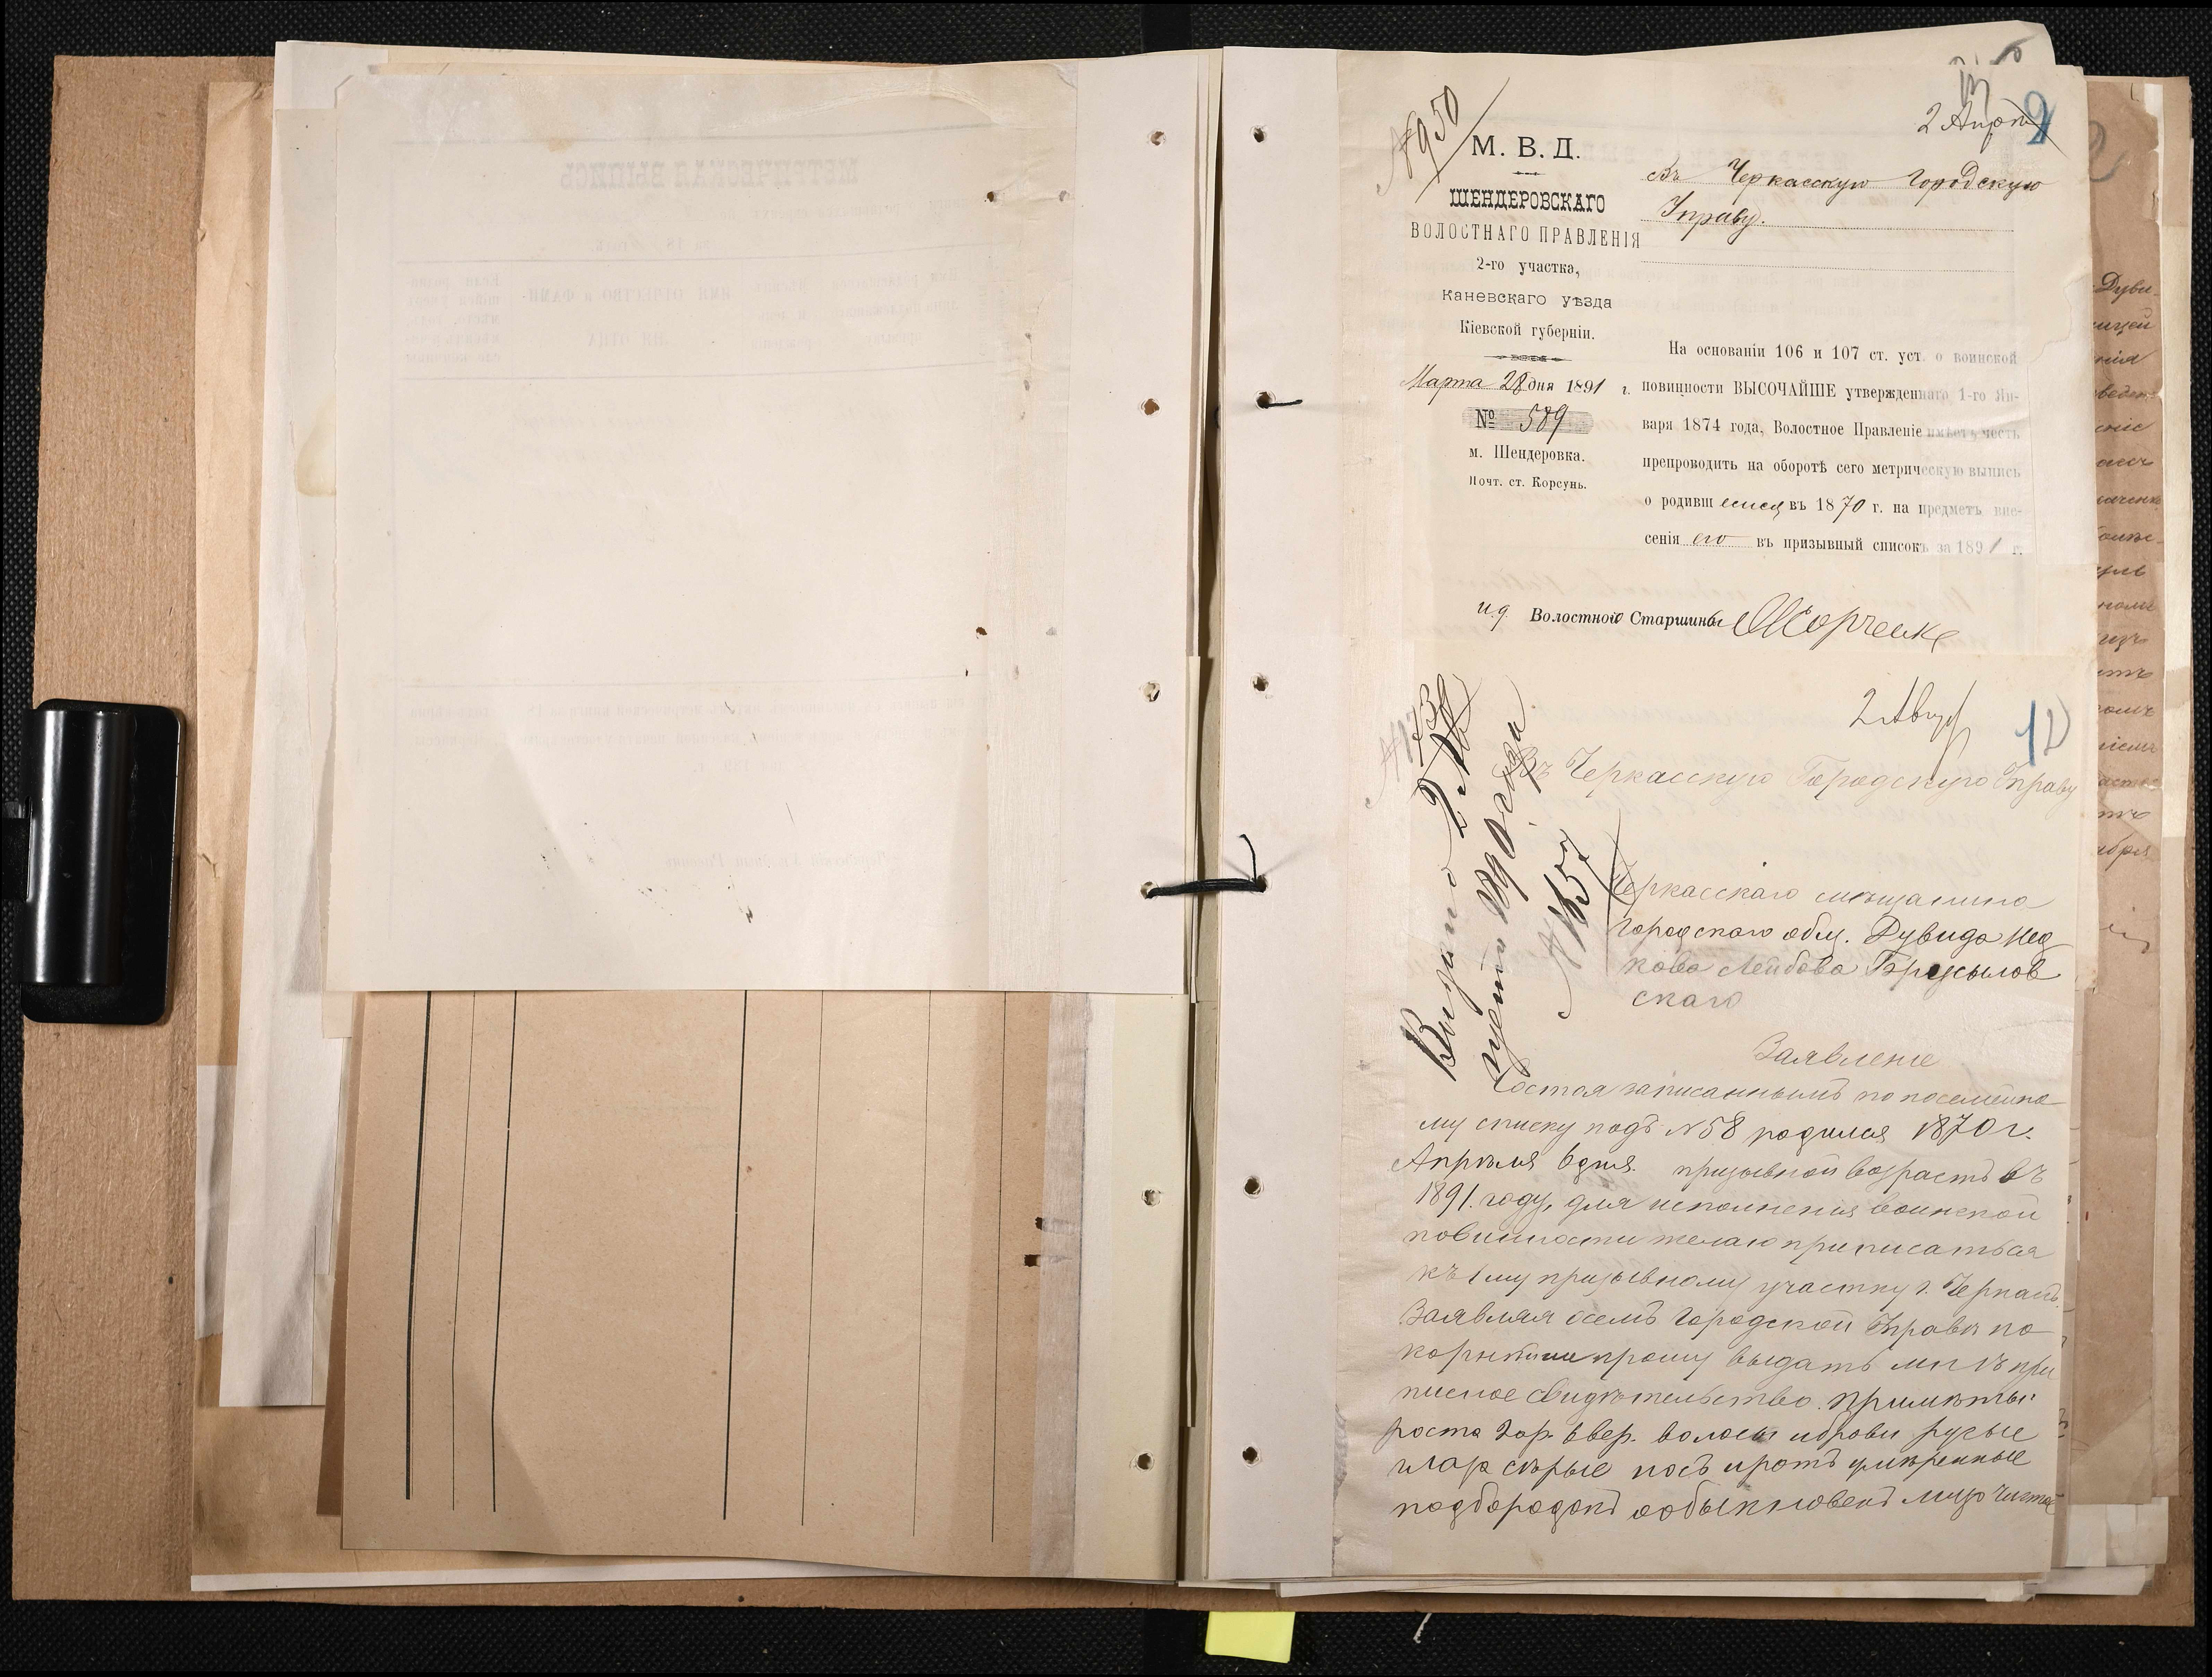 № 950
2 Апр
М. В. Д.
ШЕНДЕРОВСКАГО
ВОЛОСТНАГО ПРАВЛЕНІЯ
2-го участка,
Каневскаго уѣзда
Кіевской губерніи.
Марта 28 дня 1891 г.
№ 589
м. Шендеровка.
Почт. ст. Корсунь.
Въ Черкасскую Городскую
Управу.
На основаніи 106 и 107 ст. уст. о воинской
повинности ВЫСОЧАЙШЕ утвержденнаго 1-го Ян-
варя 1874 года, Волостное Правленіе имѣетъ честь
препроводить на оборотѣ сего метрическую выпись
о родивш емся въ 1870 г. на предметъ вне-
сенія его въ призывный списокъ за 1891 г.
и.д. Волостного Старшины
2 Авг
12
Въ Черкасскую Городскую Управу
Черкасскаго мѣщанина
Городского общ. Дувида Иц
кова Лейбова
скаго
года
№ 1657
Заявленіе
Состоя записаннымъ по посемейно
му списку подъ №58 родился 1870 г.
Апрѣля 6 дня. призывной возрастъ въ
1891. году, для исполненія воинской
повинности желаю приписаться
къ 1му призывному участку г. Черкасъ.
Заявляя осемъ Городской Управѣ по
корнѣйше прошу выдать мнѣ при
писное свидѣтельство. примѣты:
роста 2 ар. 6 вер. волосы и брови русые
глаза сѣрые носъ и ротъ умѣренные
подбородокъ обыкновенъ лицо чистое